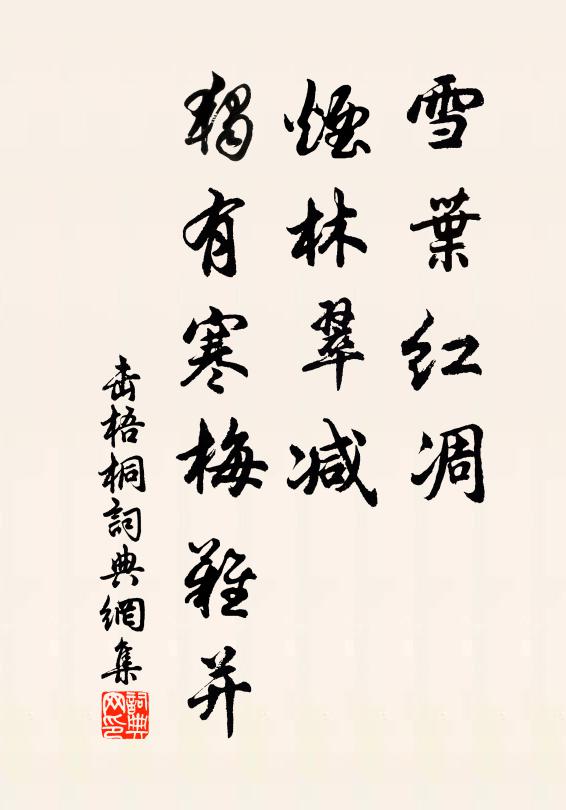 雪葉紅凋
煙林翠減
獨有寒梅難并
击梧桐詞典網集
詞典网印